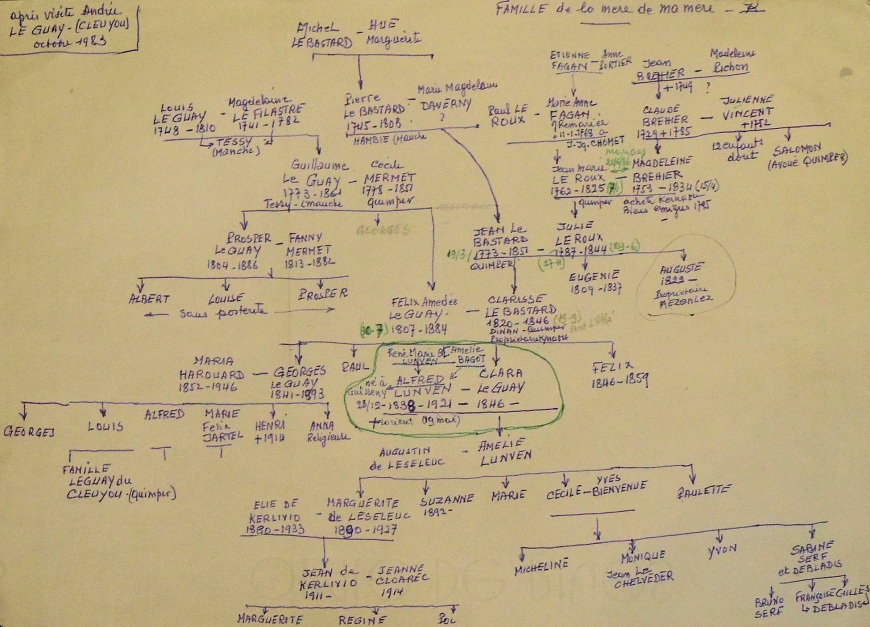 après visite Andrée
LE GUAY-(CLEUYOU)
octobre 1983
FAMILLE de la mère de ma mère
Michel — HUE
LE BASTARD Marguerite
ETIENNE — Anne
FAGAN
Jean — Madeleine
BREHIER Pichon
+1749 ?
Louis — Magdelaine
LE GUAY LE FILASTRE
1748-1810 1741-1782
TESSY
(Manche)
Pierre — Marie Magdelaine
LE BASTARD DAVERNY
1745-1808 ?
HAMBIE (Manche)
Paul LE — Marie Anne
ROUX FAGAN
Remariée
J. Jq. CHOMET
CLAUDE — JULIENNE
BREHIER VINCENT
1729+1785 +1782
12 enfants
dont
SALOMON
(Avoué QUIMPER)
Guillaume — Cécile
LE GUAY MERMET
1773-1861 1778-1851
Tessy-(manche) Quimper
Jean Marie — MAGDELEINE
LE ROUX BREHIER
1762-1825 1753-1834 (15/4)
Quimper
Biens émigrés 1795
PROSPER — FANNY
LE GUAY MERMET
1804-1886 1813-1882
GEORGES
JEAN LE — JULIE
BASTARD LE ROUX
19/3/1773-1851 1787-1844 (23-6)
QUIMPER (27-11)
EUGENIE
1809-1837
AUGUSTE
1822-
Propriétaire
MEZANLEZ
ALBERT LOUISE PROSPER
← sans postérité →
FELIX Amédée — CLARISSE
LE GUAY LE BASTARD
(10-7) 1807-1884 1820-1846 (19-9)
DINAN-Quimper
René Marie — Amélie
LUNVEN BAGOT
MARIA — GEORGES
HAROUARD LE GUAY
1852-1946 1841-1893
PAUL
né à ALFRED — CLARA
Guisseny LUNVEN LE GUAY
28/12-1838-1921 - 1846-
+ Lorient (19 mai)
FELIX
1846-1859
GEORGES LOUIS ALFRED MARIE HENRI ANNA
Felix +1914 Religieuse
JARTEL
FAMILLE
LEGUAY du
CLEUYOU-(Quimper)
AUGUSTIN — AMELIE
de LESELEUC LUNVEN
ELIE DE — MARGUERITE SUZANNE MARIE CECILE — YVES PAULETTE
KERLIVIO de LESELEUC 1892- BIENVENUE
1880-1933 1890-1927
MICHELINE MONIQUE YVON SABINE
Jean LE SERF
CHELVEDER et DEBLADIS
JEAN de — JEANNE
KERLIVIO CLOAREC
1911- 1914
BRUNO FRANÇOISE GILLES
SERF DEBLADIS
MARGUERITE REGINE POL